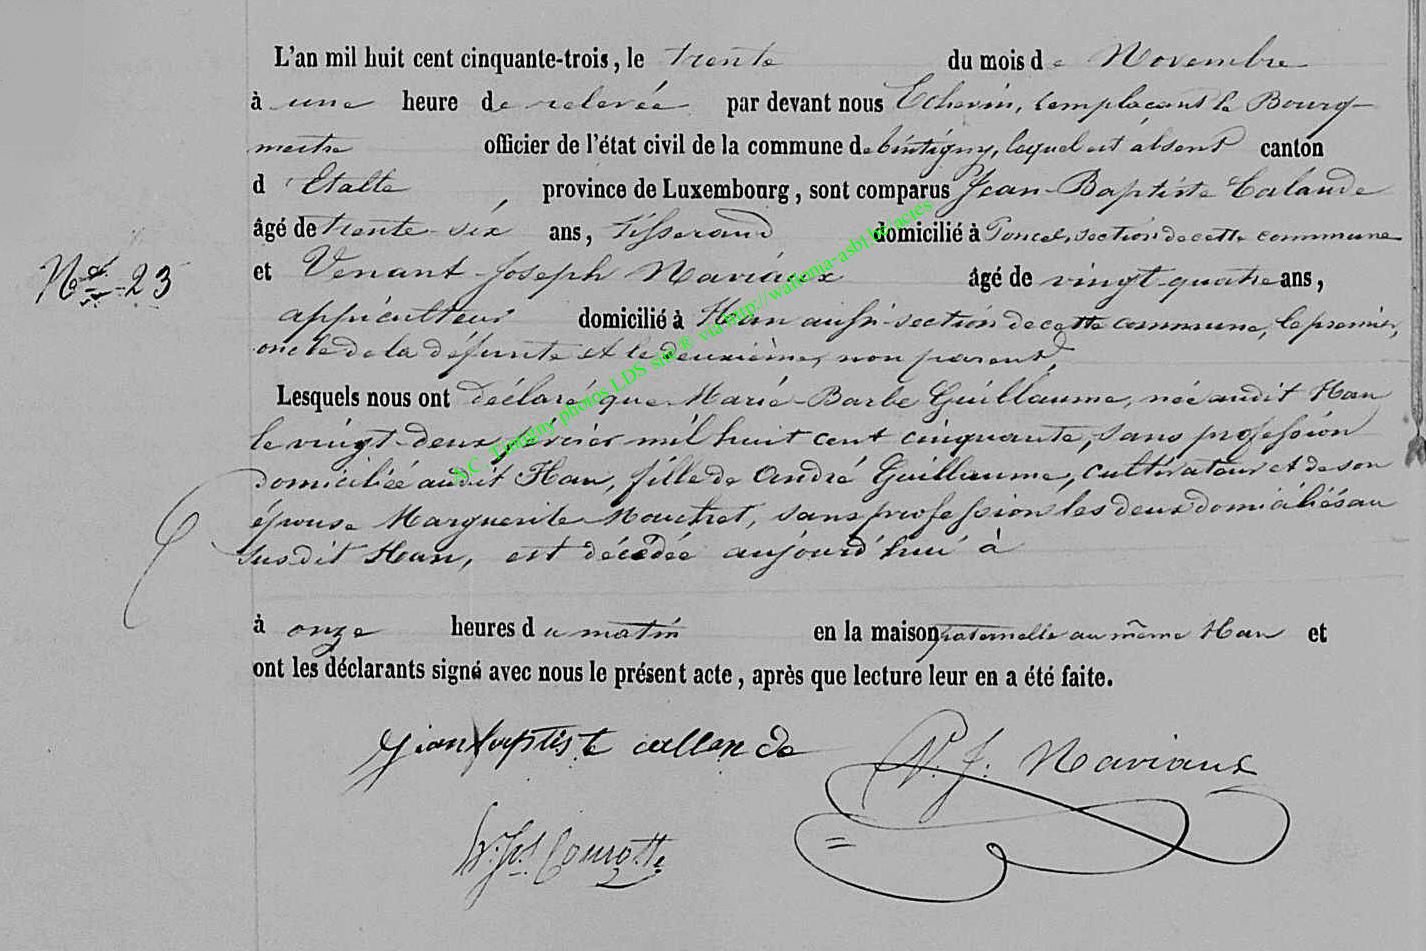 L'an mil huit cent cinquante-trois, le trente du mois de Novembre
à une heure de relevée par devant nous Echevin, remplaçant le Bourg-
mestre officier de l'état civil de la commune de tintigny, lequel est absent canton
d'Etalle province de Luxembourg, sont comparus Jean-Baptiste Calande
âgé de trente-six ans, tisserand domicilié à Poncel, section de cette commune
Nº 23 et Venant-Joseph Naviaux âgé de vingt-quatre ans,
domicilié à Han aussi section de cette commune, le premier,
oncle de la défunte et le deuxième, non parent,
Lesquels nous ont déclaré que Marie-Barbe Guillaume, née audit Han
le vingt-deux février mil huit cent cinquante, sans profession
domiciliée audit Han, fille de André Guillaume, cultivateur et de son
épouse Marguerite Mouchet, sans profession les deux domiciliés au
susdit Han, est décédée aujourd'hui à
à onze heures du matin en la maison paternelle au même Han et
ont les déclarants signé avec nous le présent acte, après que lecture leur en a été faite.
jean baptiste callande V. J. Naviaux
A.C. Tintigny photos LDS site® via http://wallonia-asbl.be/actes